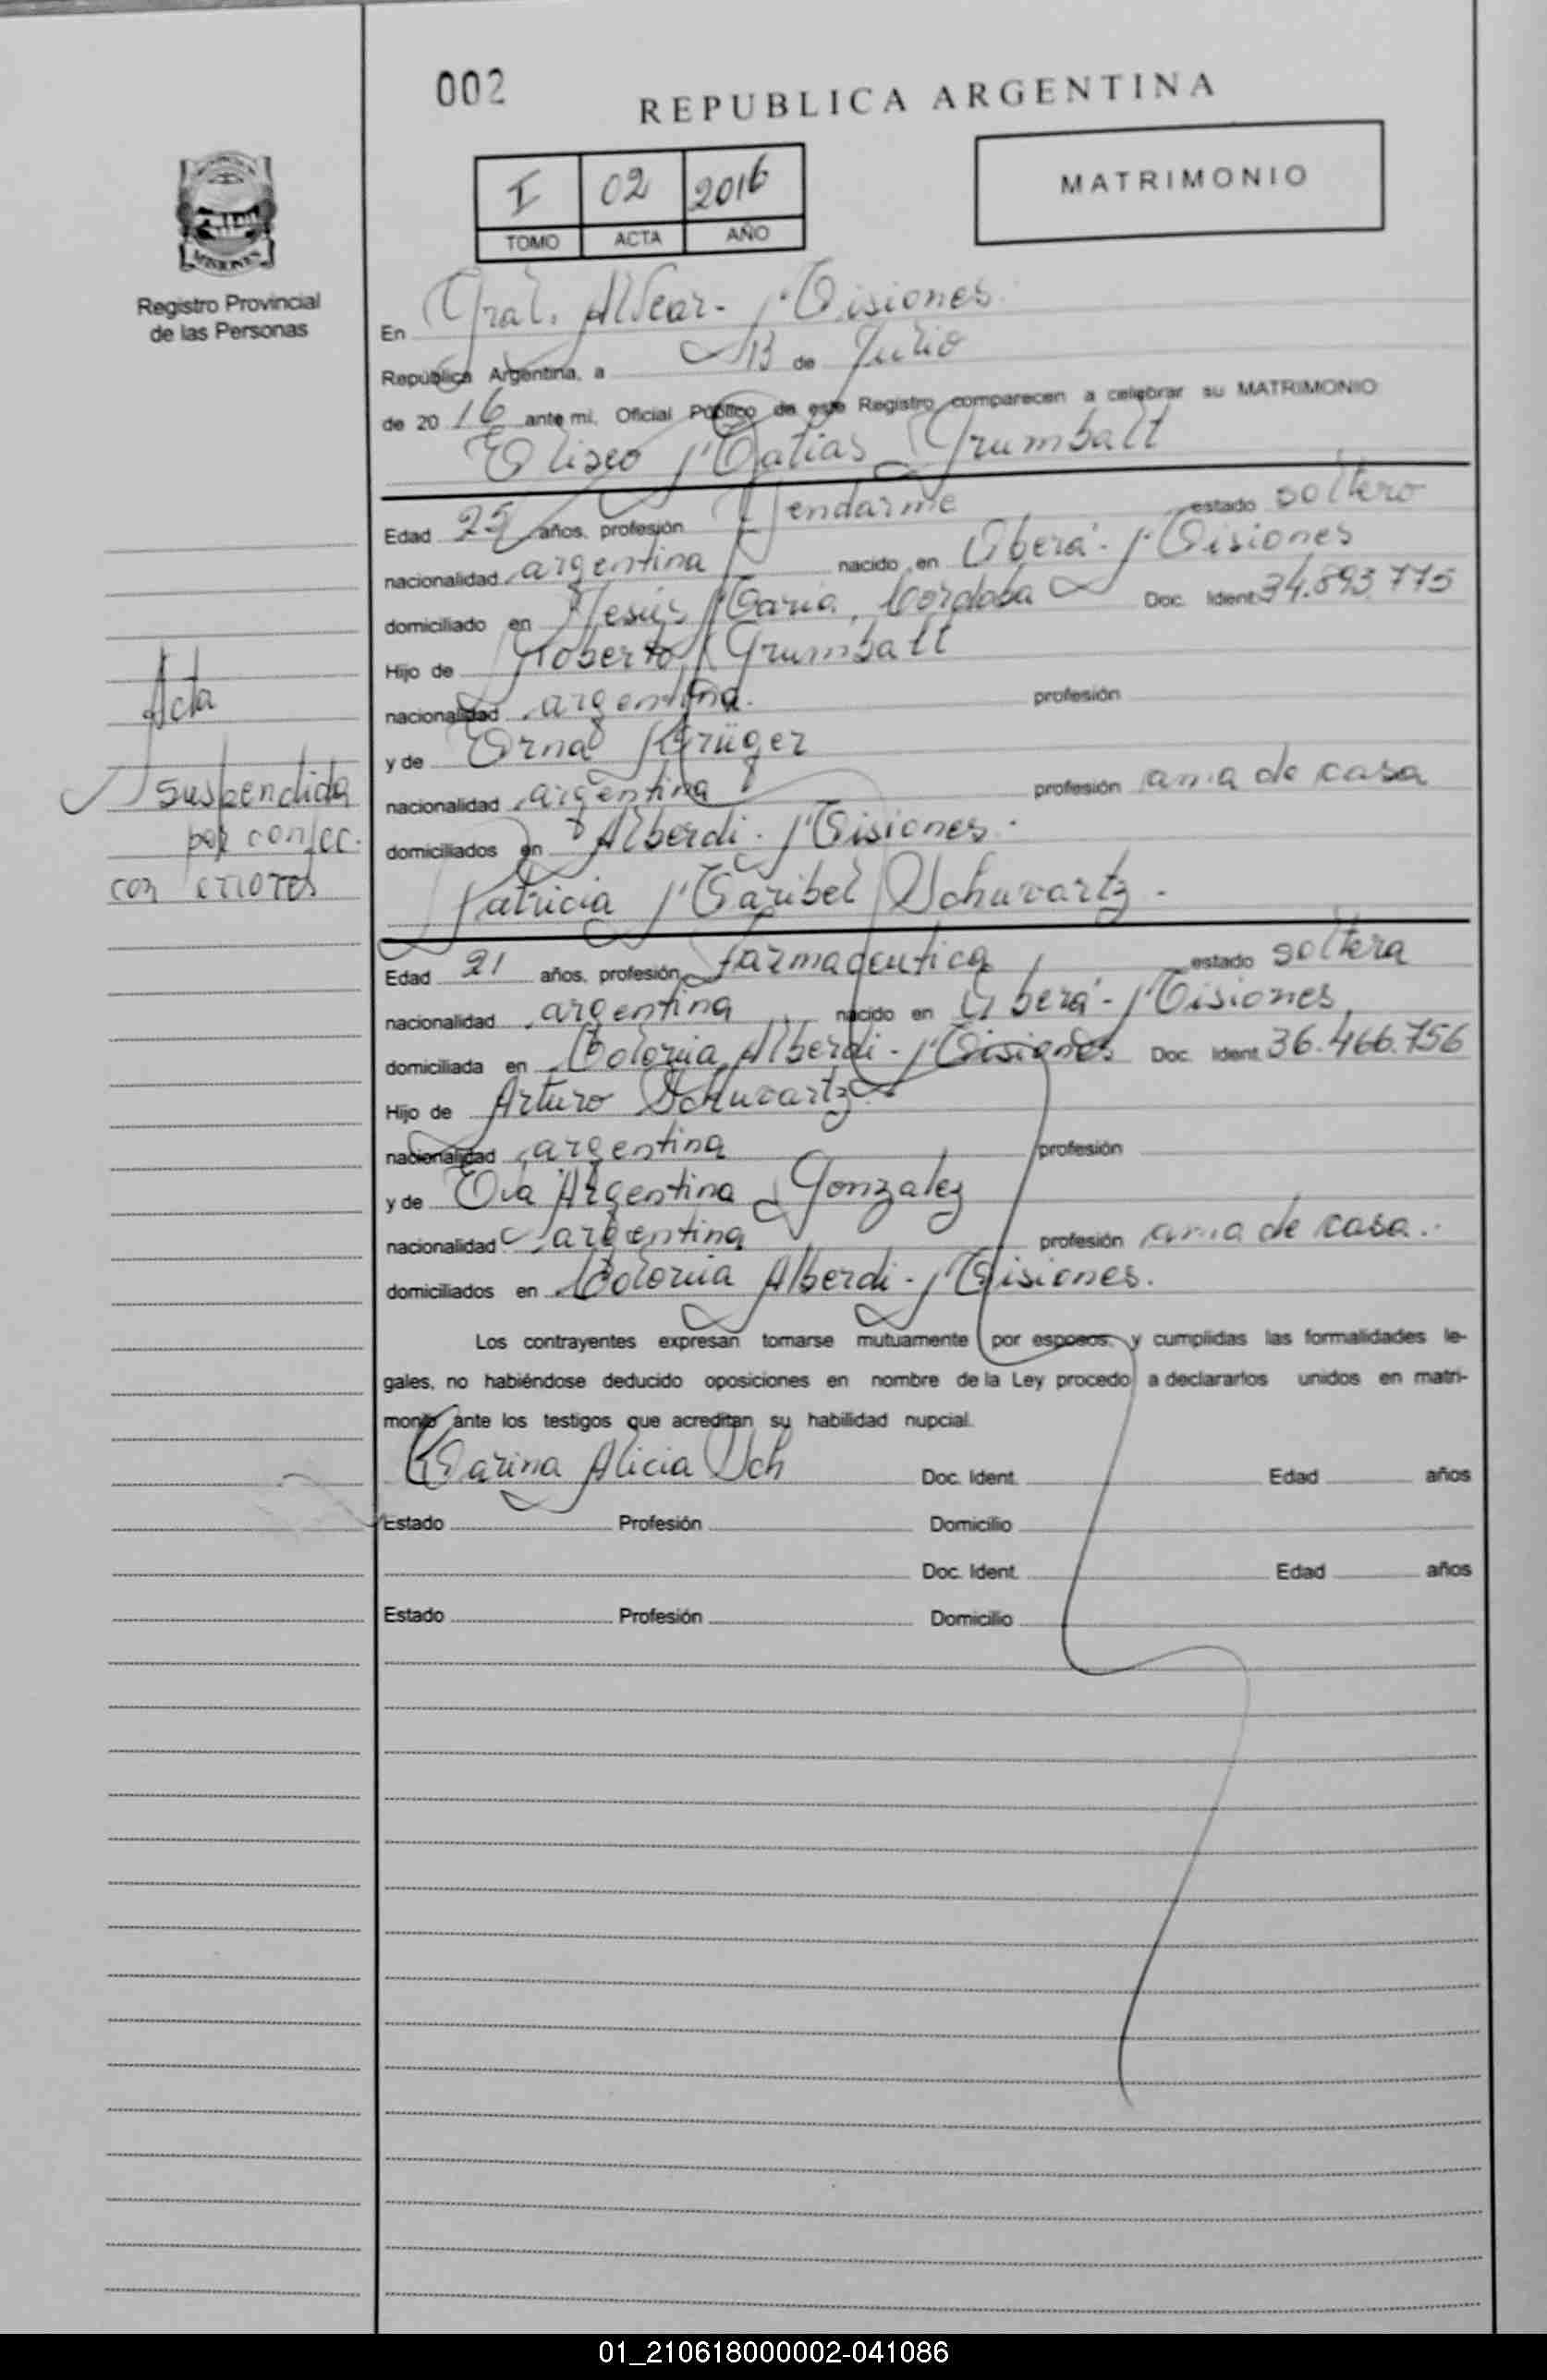 002
REPUBLICA ARGENTINA
I 02 2016
TOMO ACTA AÑO
MATRIMONIO
MISIONES
Registro Provincial
de las Personas
En Gral. Alvear - Misiones
República Argentina, a 13 de Julio
de 20 16 ante mi, Oficial Público de este Registro comparecen a celebrar su MATRIMONIO
Eliseo Matias Grumbalt
Edad años, profesión Gendarme estado soltero
nacionalidad argentina nacido en Oberá - Misiones
domiciliado en Jesús María, Córdoba Doc. Ident. 34.893.775
Hijo de Roberto Grumbalt
nacionalidad argentina. profesión
y de Erna Krüger
nacionalidad argentina profesión ama de casa
domiciliados en Alberdi - Misiones.
Patricia Maribel Schwartz -
Edad 21 años, profesión farmaceutica estado soltera
nacionalidad argentina nacido en Oberá - Misiones
domiciliada en Colonia Alberdi - Misiones Doc. Ident. 36.466.756
Hijo de Arturo Schwartz
nacionalidad argentina profesión
y de Eva Argentina Gonzalez
nacionalidad argentina profesión ama de casa.
domiciliados en Colonia Alberdi - Misiones.
Acta
suspendida
por confec.
con errores
Los contrayentes expresan tomarse mutuamente por esposos, y cumplidas las formalidades le-
gales, no habiéndose deducido oposiciones en nombre de la Ley procedo a declararlos unidos en matri-
monio ante los testigos que acreditan su habilidad nupcial.
Karina Alicia Sch Doc. Ident. Edad años
Estado Profesión Domicilio
Doc. Ident. Edad años
Estado Profesión Domicilio
01_210618000002-041086